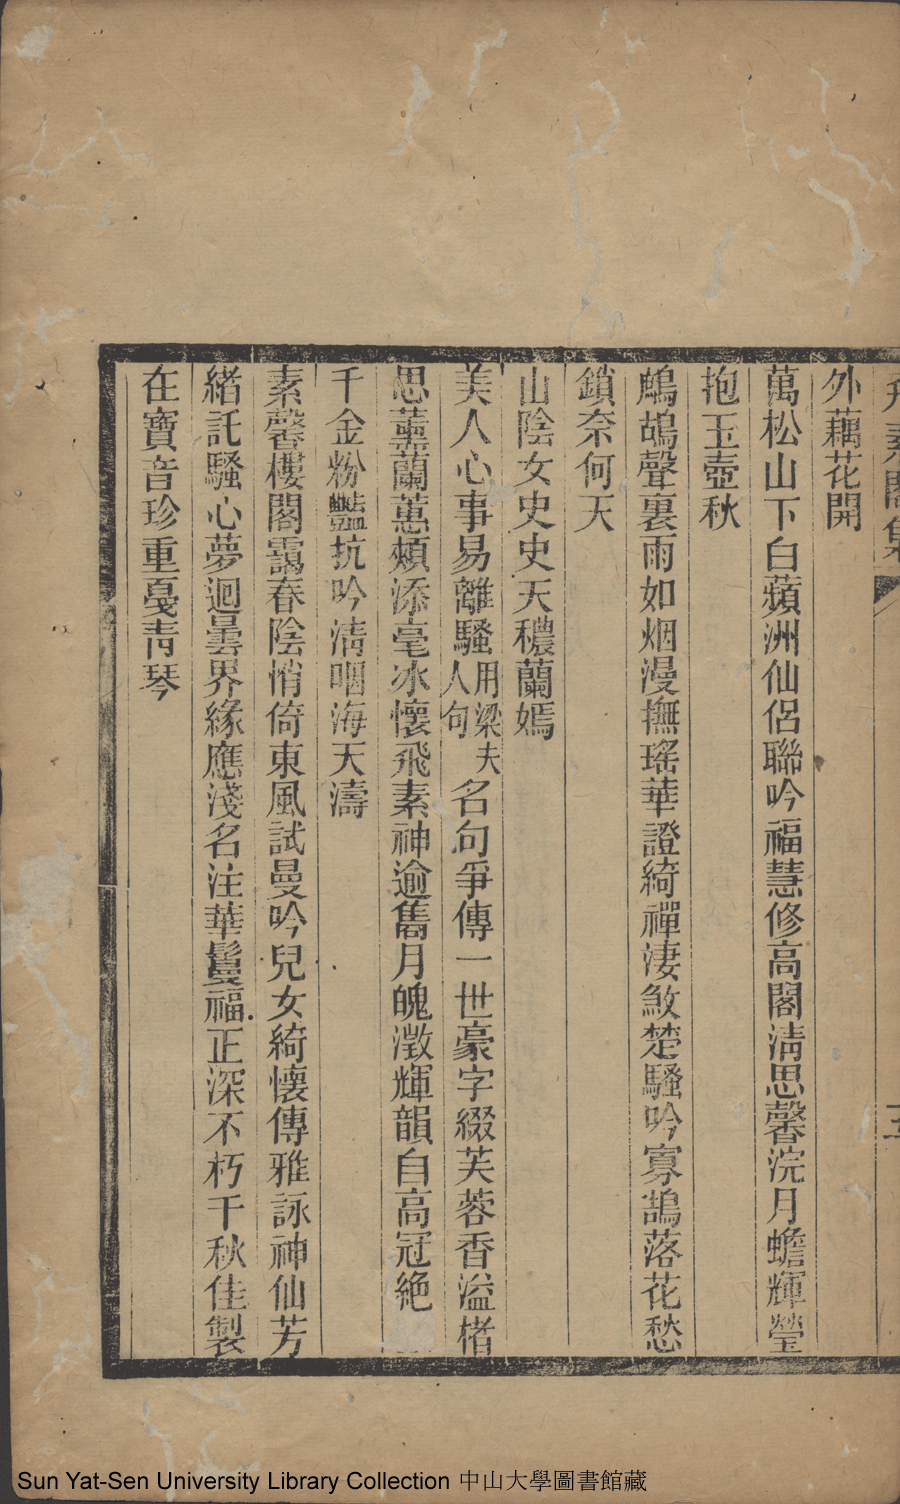 外藕花開
萬松山下白蘋洲仙侶聯吟福慧修高閣清思馨浣月蟾輝瑩
抱玉壺秋
鷓鴣聲裏雨如烟漫撫瑤華證綺禪淒斂楚騷吟寡鵠落花愁
鎖奈何天
山陰女史史天穠蘭嫣
美人心事易離騷用梁夫人句名句爭傳一世豪字綴芙蓉香溢楮
思薰蘭蕙頰添毫冰懷飛素神逾雋月魄澂輝韻自高冠絶
千金粉豔抗吟清咽海天濤
素馨樓閣靄春陰悄倚東風試曼吟兒女綺懷傳雅詠神仙芳
緒託騷心夢迴曇界緣應淺名注華鬘福正深不朽千秋佳製
在寶音珍重戞靑琴
Sun Yat-Sen University Library Collection 中山大學圖書館藏